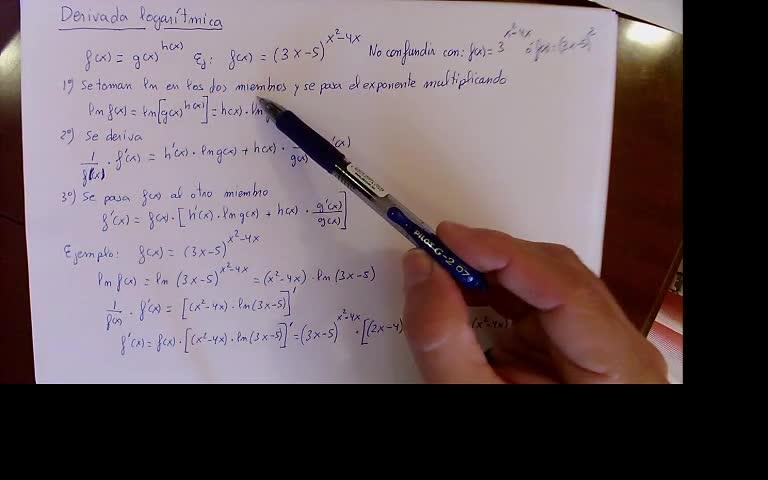 Derivada logarítmica
f(x) = g(x)^h(x) Ej: f(x) = (3x-5)^x²-4x No confundir con: f(x) = 3^x²-4x ó f(x) = (3x-5)²
1º) Se toman ln en los dos miembros y se pasa el exponente multiplicando
ln f(x) = ln[g(x)^h(x)] = h(x) · ln
2º) Se deriva
1/f(x) · f'(x) = h'(x) · ln g(x) + h(x) · /g(x) '(x)
3º) Se pasa f(x) al otro miembro
f'(x) = f(x) · [h'(x) · ln g(x) + h(x) · g'(x)/g(x)]
Ejemplo: f(x) = (3x-5)^x²-4x
ln f(x) = ln (3x-5)^x²-4x = (x²-4x) · ln (3x-5)
1/f(x) · f'(x) = [(x²-4x) · ln (3x-5)]'
f'(x) = f(x) · [(x²-4x) · ln (3x-5)]' = (3x-5)^x²-4x · [(2x-4) (x²-4x)
PILOT G-2 07